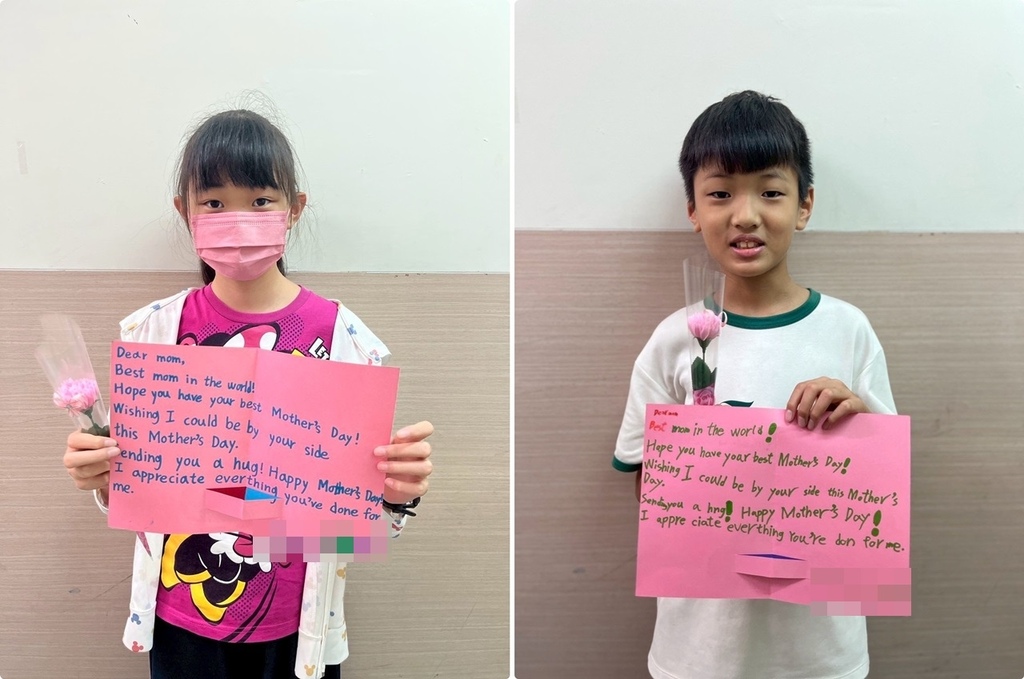 Dear mom,
Best mom in the world!
Hope you have your best Mother's Day!
Wishing I could be by your side
this Mother's Day.
Sending you a hug! Happy Mother's Day!
I appreciate everthing you've done for
me.
Dear mom
Best mom in the world!
Hope you have your best Mother's Day!
Wishing I could be by your side this Mother's
Day.
Sendsyou a hng! Happy Mother's Day!
I appre ciate everything You're don for me.